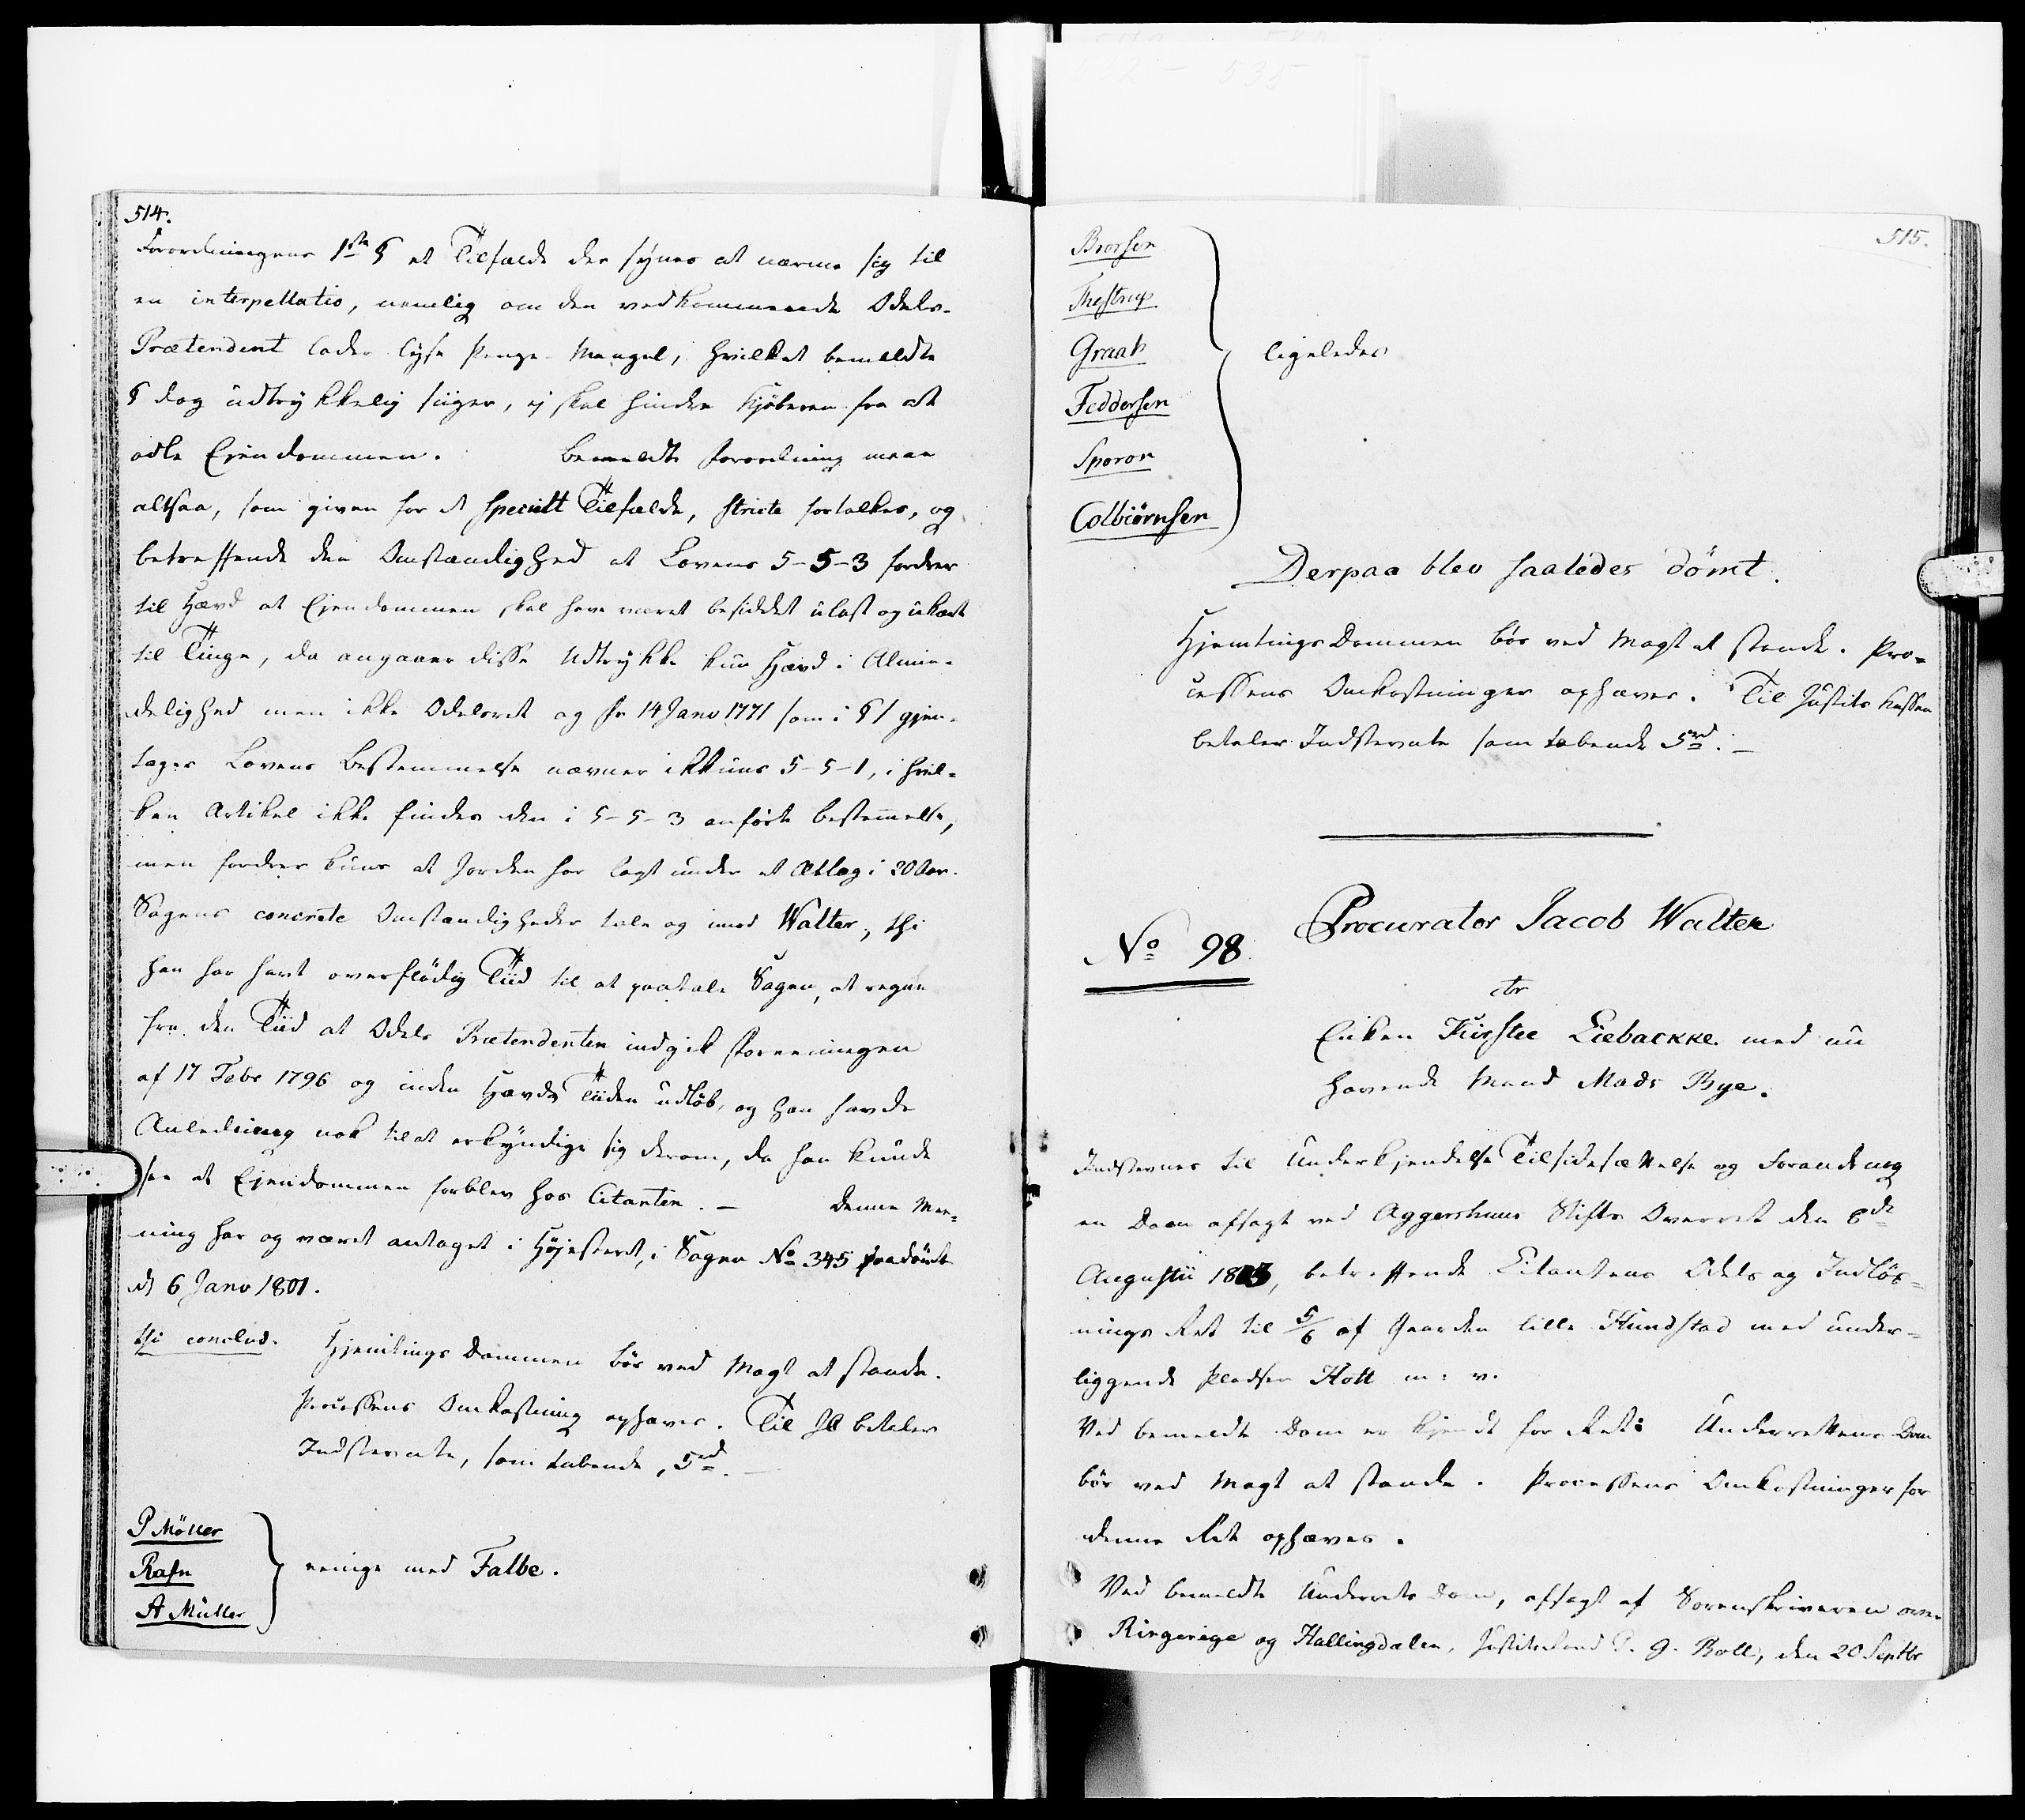 514.
Forordningens 1ste § et Tilfælde der synes at nærme sig til
en interpellatio, nemlig om den vedkommende Odels-
Prætendent lader lyse Penge-Mangel, hvilket bemeldte
§ dog udtrykkelig siiger, ej skal hindre Kjøberen fra at
odle Ejendommen. Bemeldte Forordning maae
altsaa, som given for et specielt Tilfælde, stricte fortolkes, og
betreffende den Omstændighed at Lovens 5-5-3 fordrer
til Hævd at Ejendommen skal have været besiddet ulast og ukært
til Tinge, da angaaer disse Udtrykke kun Hævd i Almin-
delighed men ikke Odelsret og Fr 14 Janv 1771 som i § 1 gjen-
tager Lovens Bestemmelse nævner ikkuns 5-5-1, i hvil-
ken Artikel ikke findes den i 5-5-3 anførte bestemelse,
men fordrer kuns at Jorden har lagt under et Ætlæg i 20 Aar.
Sagens concrete Omstændigheder tale og imod Walter, thi
han har havt overflødig Tiid til at paatale Sagen, at regne
fra den Tiid at Odels Prætendenten indgik Foreeningen
af 17 Febr 1796 og inden Hævds Tiiden udløb, og han havde
Anledning nok til at erkyndige sig derom, da han kunde
see at Ejendommen forblev hos Citanten. — Denne Mee-
ning har og været antaget i Højesteret, i Sagen No 345 paadømt
d 6 Janv 1801.
thi conclud. Hjemtings Dommen bør ved Magt at stande.
Processens Omkostning ophæves. Til JC betaler
Indstevnte, som tabende, 5rd. —
P Möller
Rafn
A Müller
eenige med Falbe.
515.
Brorsen
Thestrup
Graah
Feddersen
Sporon
Colbiörnsen
ligeledes
Derpaa blev saaledes dömt.
Hjemtings Dommen bör ved Magt at stande. Pro-
cessens Omkostninger ophæves. Til Justits Kassen
betaler Indstevnte som tabende 5rd. —
No 98.
Procurator Jacob Walter
ctr
Enken Kirstee Liebackke med nu
havende Mand Mads Bye.
Indstevner til Underkjendelse Tilsidesættelse og Forandring
en Dom afsagt ved Aggershuus Stifts Overret den 6de
Augustii 1803, betreffende Citantens Odels og Indløs-
nings Ret til 5/6 af Gaarden lille Hundstad med under-
liggende Pladsen Holt m: v.
Ved bemeldte Dom er kjendt for Ret: Underrettens Dom
bør ved Magt at stande. Processens Omkostninger for
denne Ret ophæves.
Ved bemeldte Underrets Dom, afsagt af Sorenskriveren over
Ringerige og Hallingdalen, Justitsraad P. J. Boll, den 20 Septbr